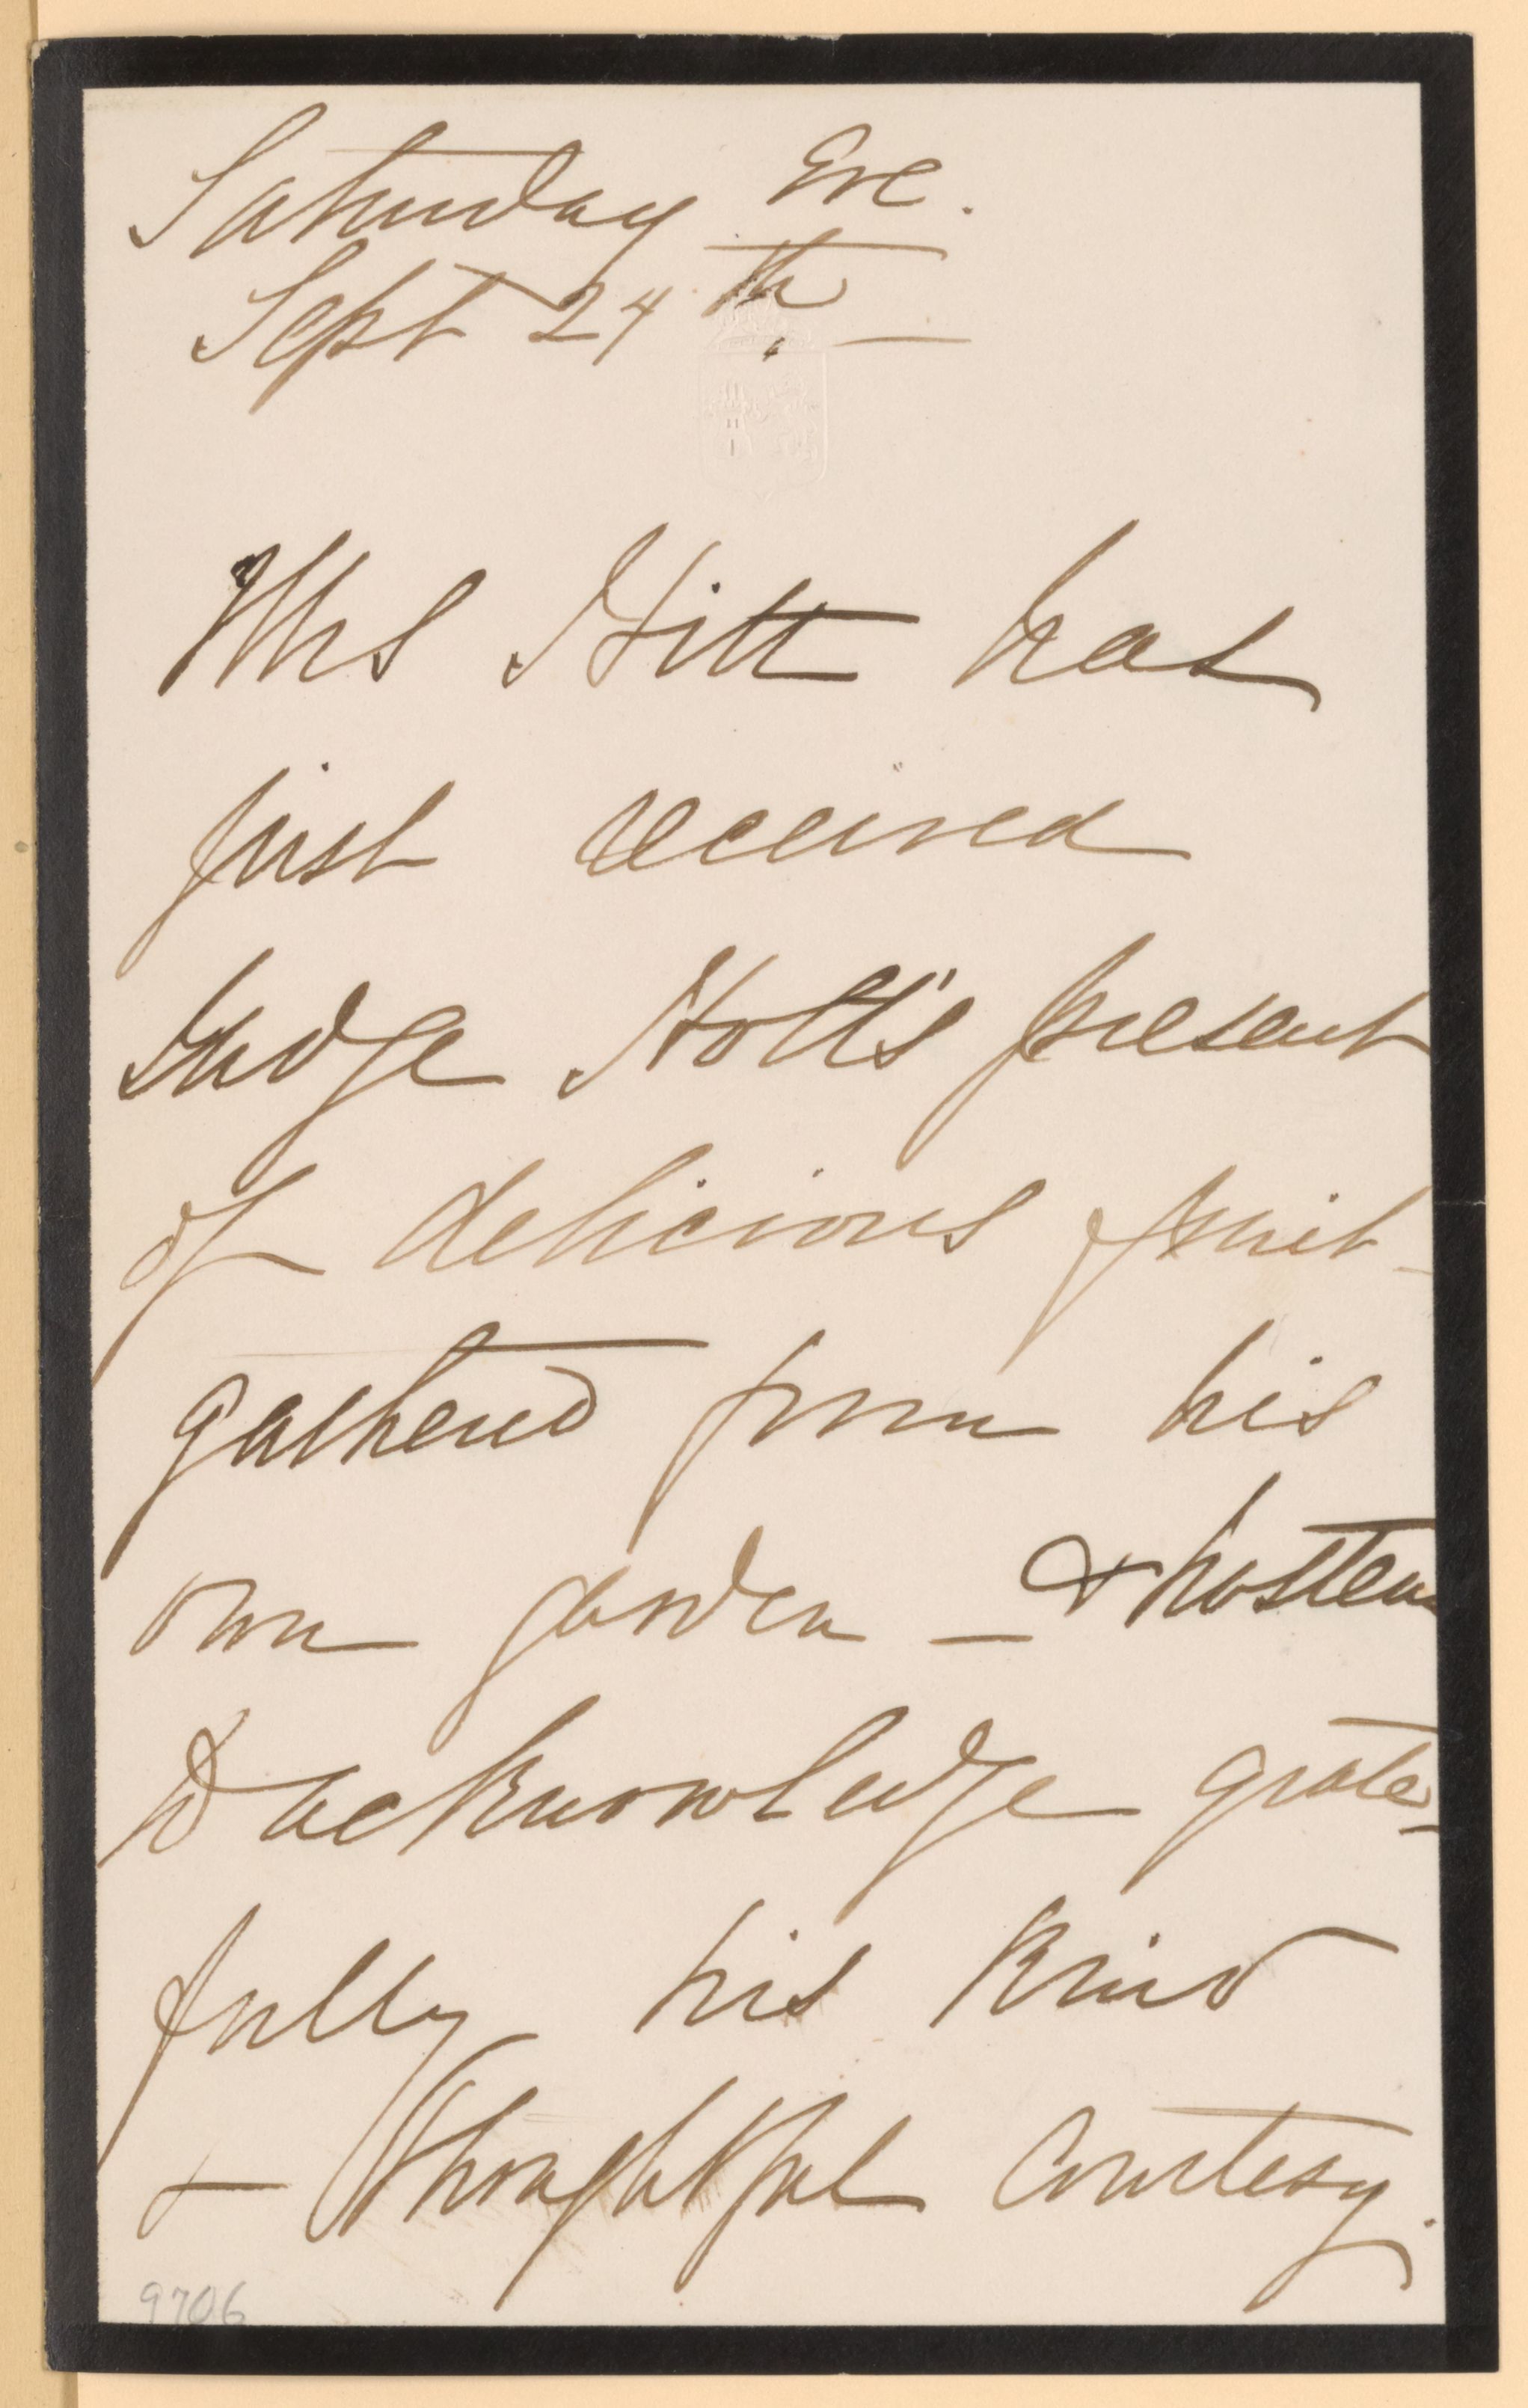 Saturday Eve.
Sept 24th. —
Mrs Hitt has
just received
Judge Holt's present
of delicious fruit -
gathered from his
own garden — & hastens
to acknowledge grate-
fully his kind
& thoughtful courtesy.
9706